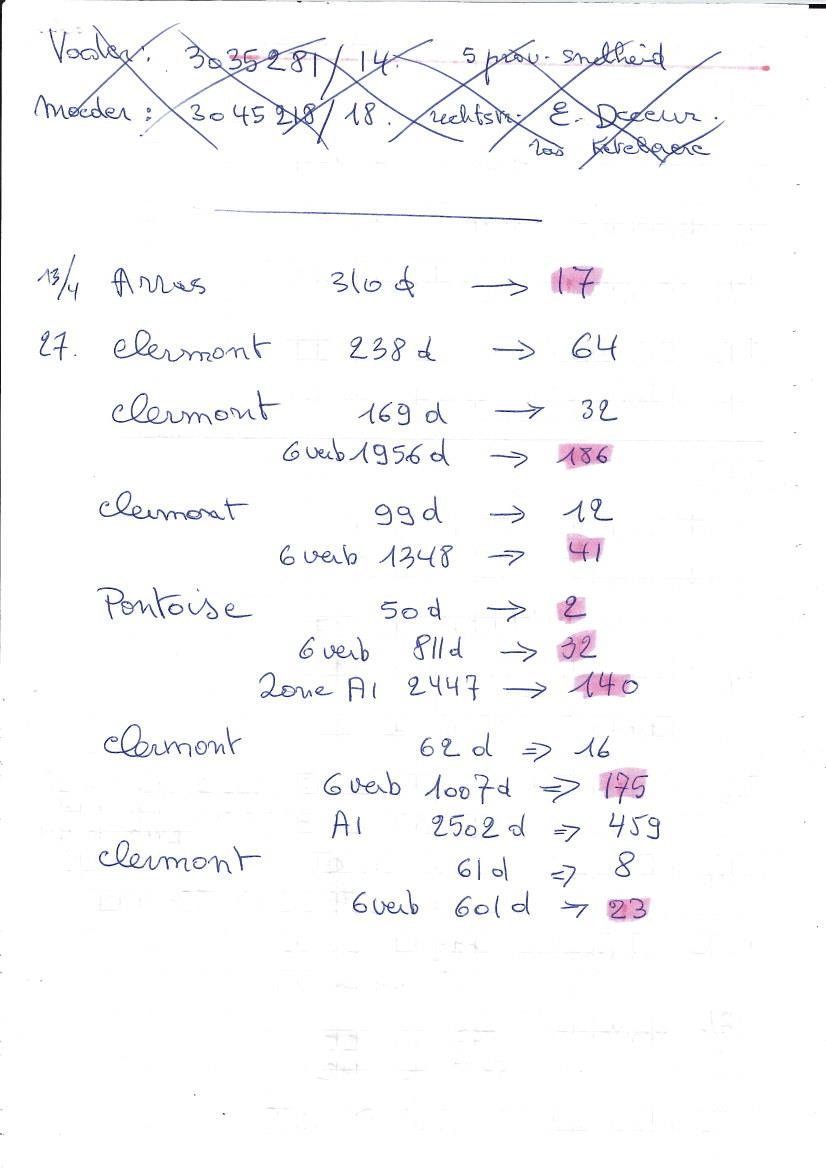 Vader: 3035281/14. 5 prov. snelheid
Moeder: 3045218/18. rechtstr. E. Deceur.
13/4 Arras 310 d → 17
27. Clermont 238 d → 64
Clermont 169 d → 32
6 verb 1956 d → 186
Clermont 99 d → 12
6 verb 1348 → 41
Pontoise 50 d → 2
6 verb 811 d → 32
Zone A1 2447 → 140
Clermont 62 d => 16
6 verb 1007 d => 175
A1 2502 d => 459
Clermont 61 d => 8
6 verb 601 d → 23